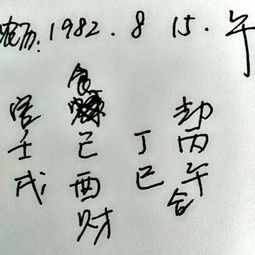 农历:1982.8 15.午
官 食 劫
壬 己 丁 丙
戌 酉 巳 午
财 合